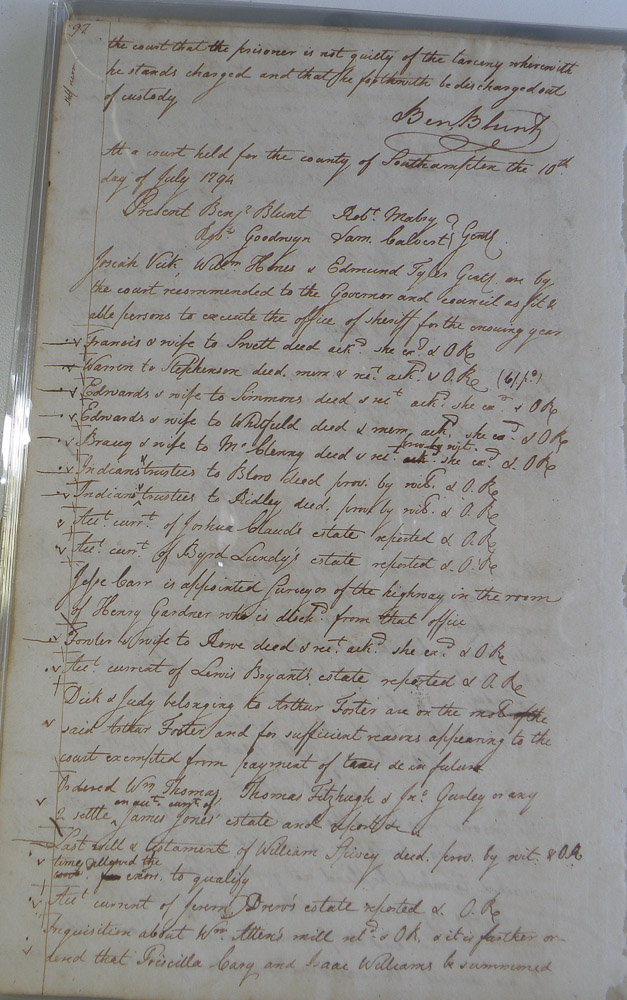 92
the court that the prisoner is not guilty of the larceny wherewith
he stands charged and that he forthwith be discharged out
of custody
Ben Blunt
At a court held for the county of Southampton the 10th
day of July 1794
Present Benj. Blunt Robt. Mabry
Goodwyn Sam. Calvert Gentl.
Josiah Vick Wm Hines & Edmund Tyler Gentl. are by
the court recommended to the Governor and council as fit &
able persons to execute the office of sheriff for the ensuing year
Francis & wife to deed ackd. she exd. & O Re
Warren to Stephenson deed. mem & rect. ackd. & O. Re
Edwards & wife to Simmons deed & rect ackd. she exd. & O Re
Edwards & wife to Whitfield deed & mem ackd. she exd. & O Re
prov. by wit.
& wife to Mc Clenny deed & rect. ack. she exd. & O. Re
Indians trustees to Blow deed prov. by wits. & O. Re
Indians trustees to Ridley deed. prov. by wits. & O. Re
Acct. currt. of Joshua Claud's estate reported & O. Re
Acct. currt. of Byrd Lundy's estate reported & O. Re
Jesse Carr is appointed Surveyor of the highway in the room
of Henry Gardner who is dischd. from that office
Fowler & wife to Rowe deed & rect. ackd. she exd. & O Re
Acct. current of Lewis Bryant's estate reported & O. Re
Dick & Judy belonging to Arthur Foster are on the mo of the
said Arthur Foster and for sufficient reasons appearing to the
court exempted from payment of taxes de in future
Ordered Wm Thomas Thomas Fitzhugh & Jno. Gurley or any
on acct. currt. of
2. settle James Jones' estate and report &c
Last will & testament of William Spivey decd. prov. by wit. & O. Re
time allowed the
exors. to qualify
Acct. current of Jeremy Drew's estate reported &. O. Re
Inquisition about Wm. Allen's mill retd. & OR. & it is further or-
dered that Priscilla Cary and Isaac Williams be summoned